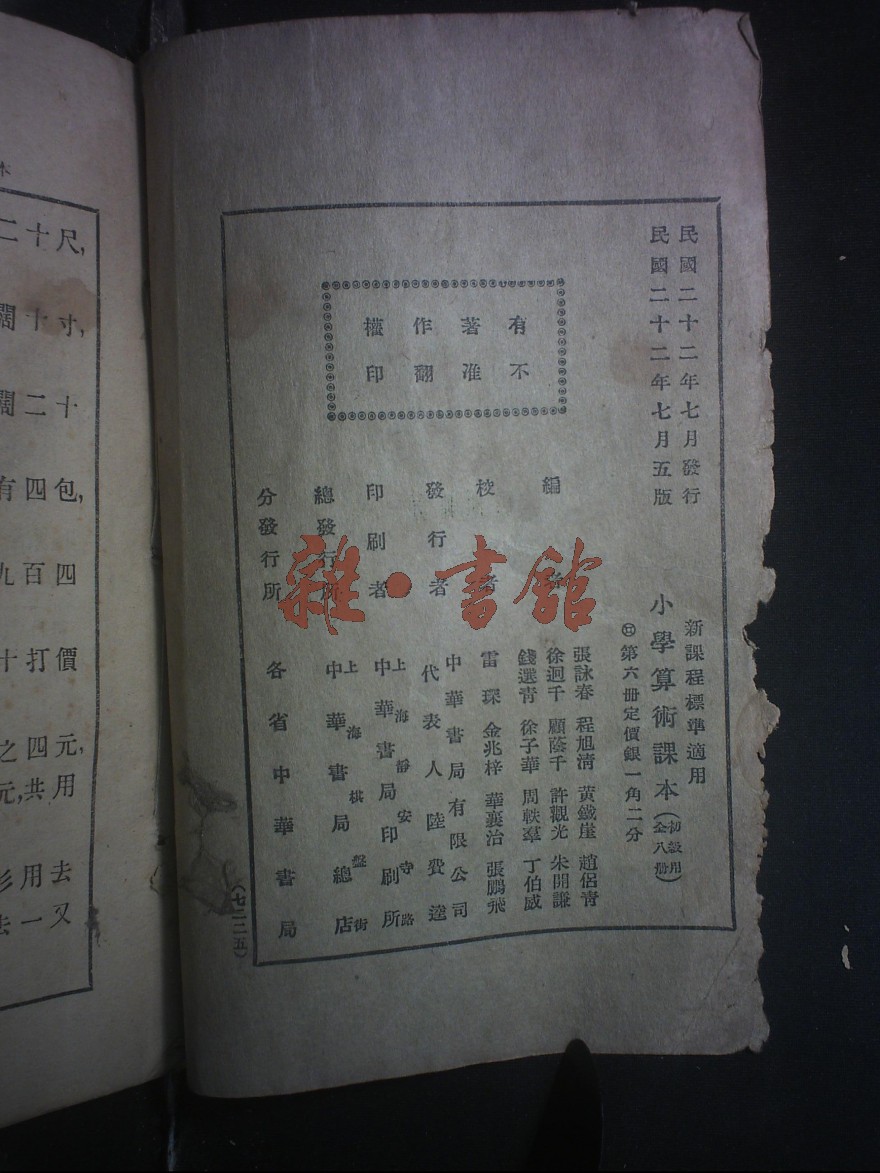 民國二十二年七月發行
民國二十二年七月五版
新課程標準適用
小學算術課本(初級用全八冊)
第六冊定價銀一角二分
有著作權
不准翻印
編者
張詠春 程旭清 黃鐵崖 趙侶青
徐迥千 顧蔭千 許觀光 朱開謙
錢選青 徐子華 周軼羣 丁伯威
校者
雷琛 金兆梓 華襄治 張鵬飛
發行者
中華書局有限公司
代表人 陸費逵
印刷者
上海靜安寺路
中華書局印刷所
總發行所
上海棋盤街
中華書局總店
分發行所
各省中華書局
(七二二五)
雜·書館
尺,十二
寸,十闊
十二闊
包,四有
四百九
價打十
元,四之
用共元,
去用
又一去
本